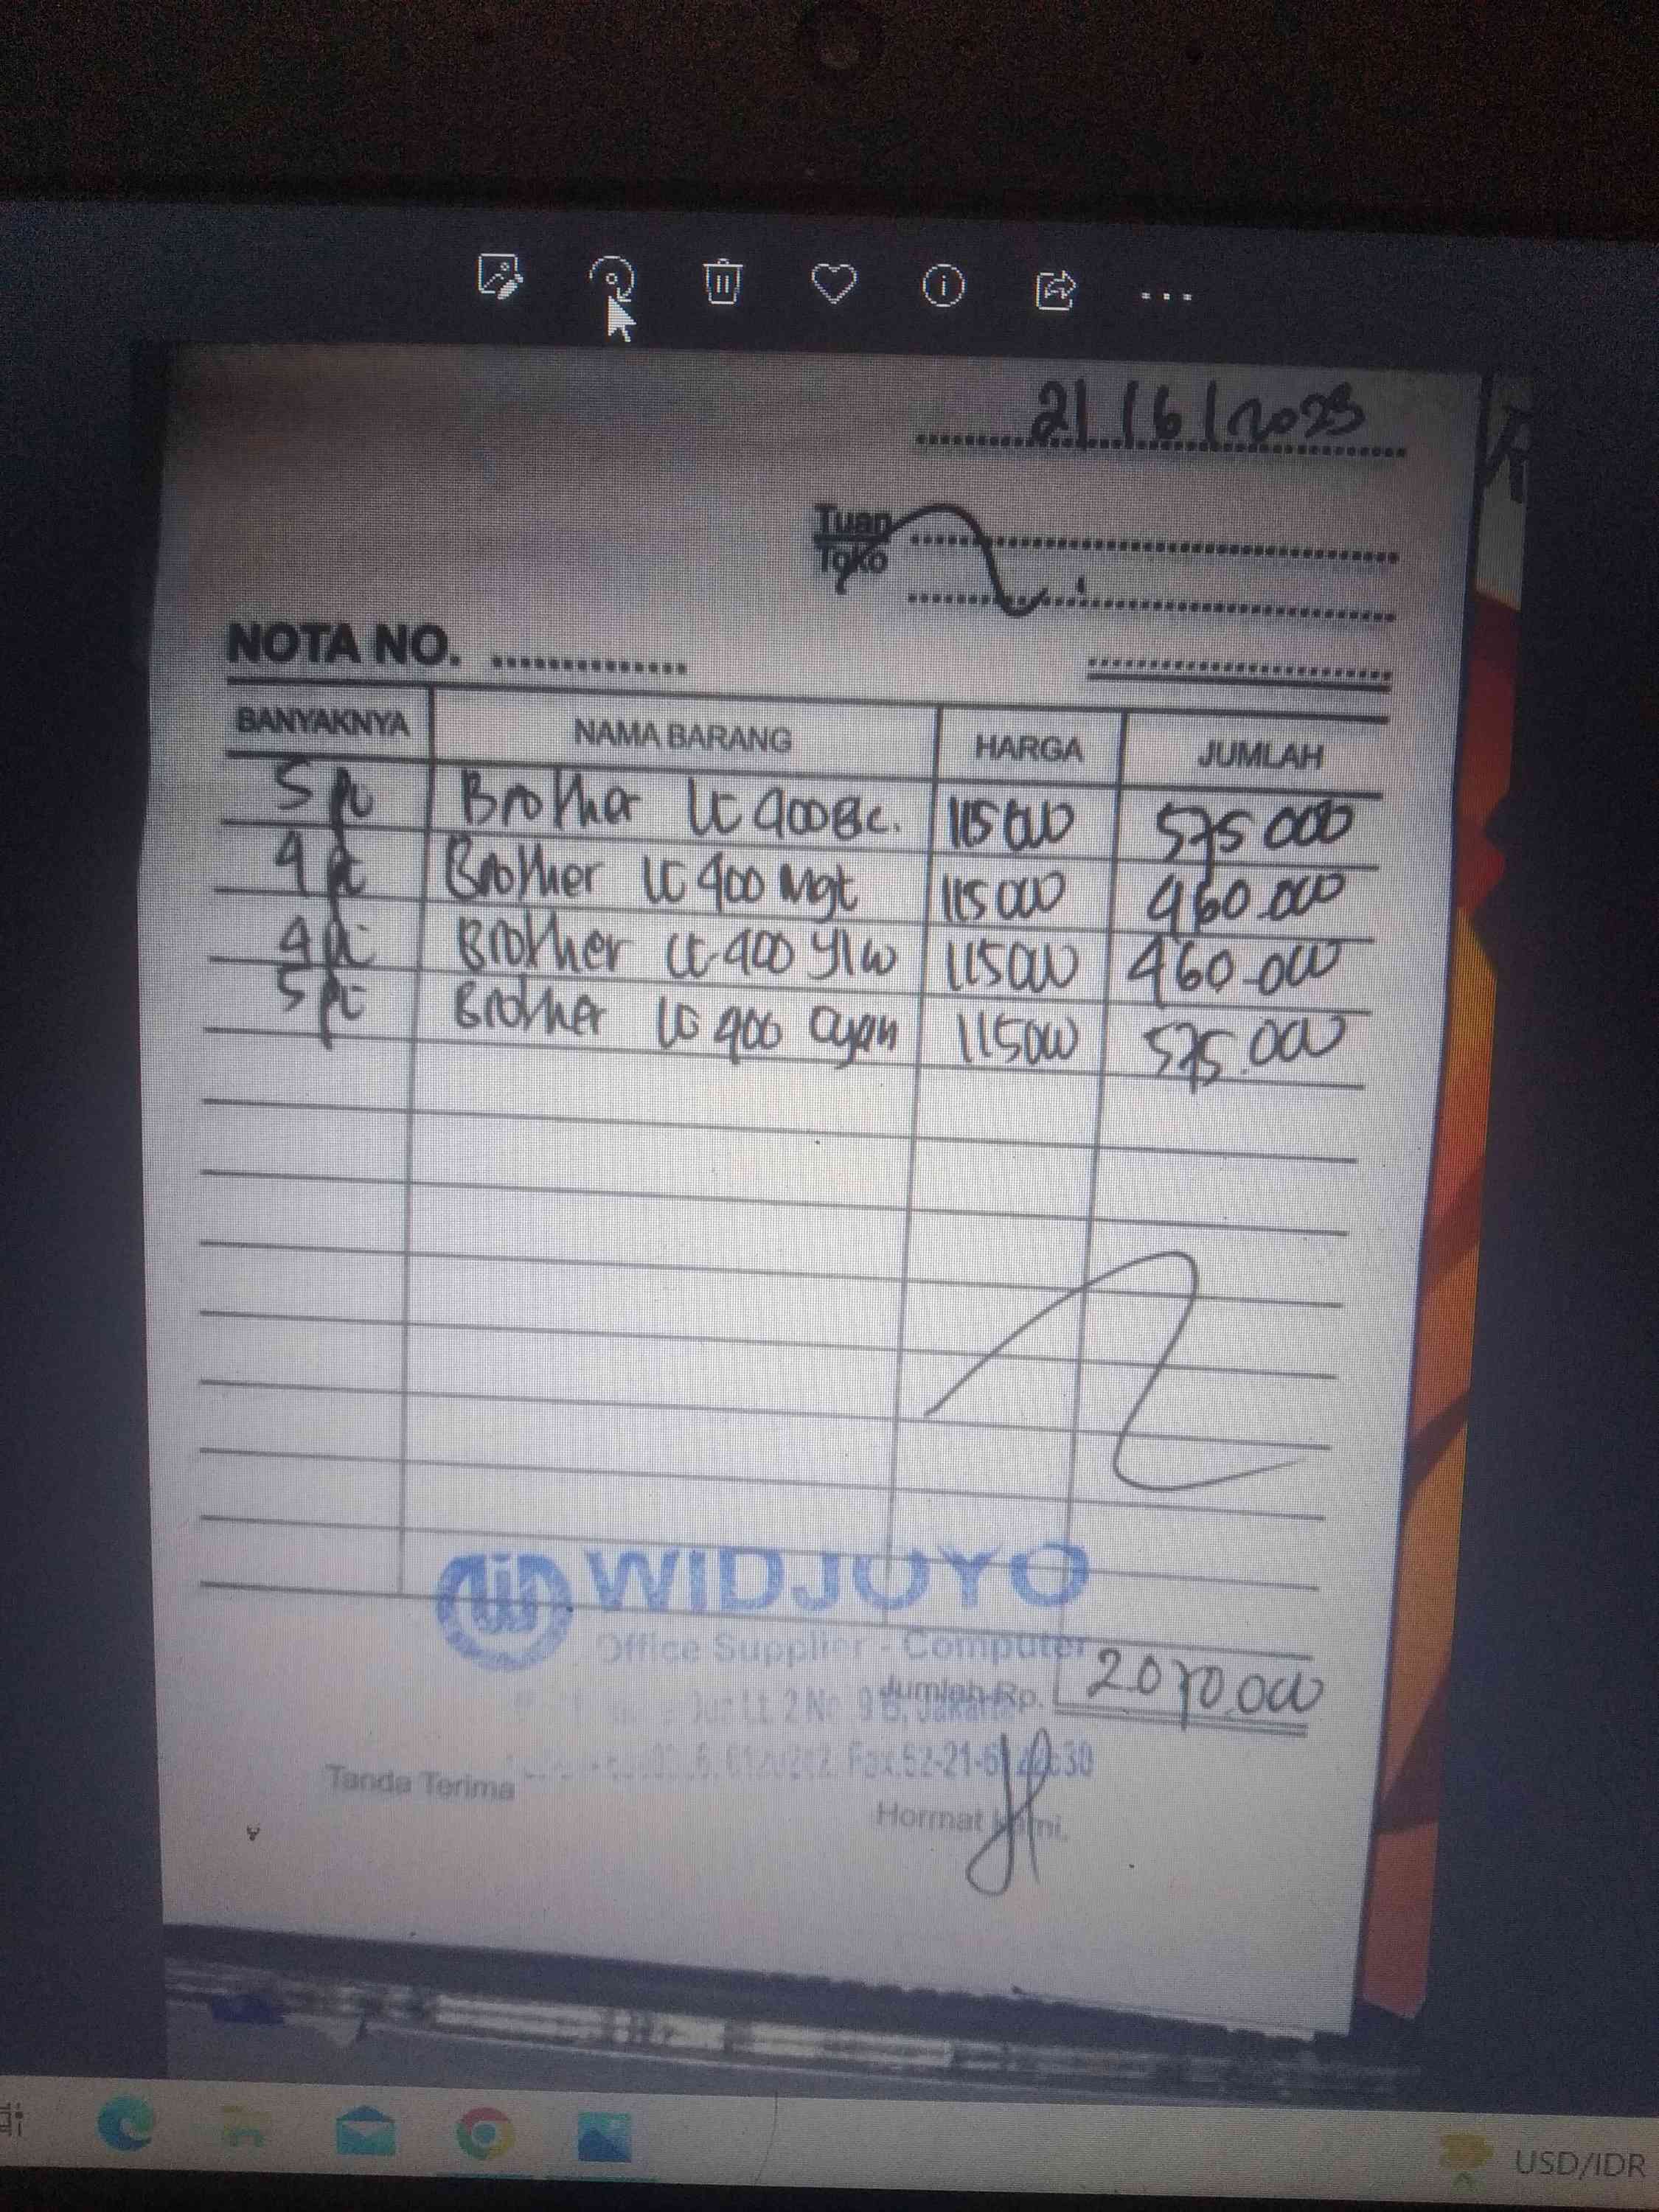 21/6/2023
Tuan
Toko
NOTA NO. ..............
BANYAKNYA NAMA BARANG HARGA JUMLAH
5 pc Brother LC 400 Bc. 115000 575000
4 pc Brother LC 400 Mgt 115000 460.000
4 pc Brother LC 400 Ylw 115000 460.000
5 pc Brother LC 400 Cyan 115000 575.000
WIDJOYO
Office Supplier - Computer
Jumlah Rp. 2070.000
Lt. 2 No
Fax.62-21-6
Tanda Terima
Hormat kami,
USD/IDR